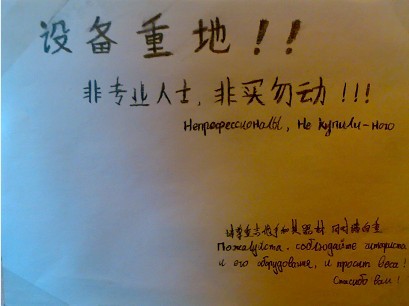 设备重地!!
非专业人士,非买勿动!!!
Непрофессионалы, Не купили-ного
请尊重 和其器材 同时请自重
Пожалуйста. соблюдайте
и его оборудование, и просит веса!
Спасибо вам!